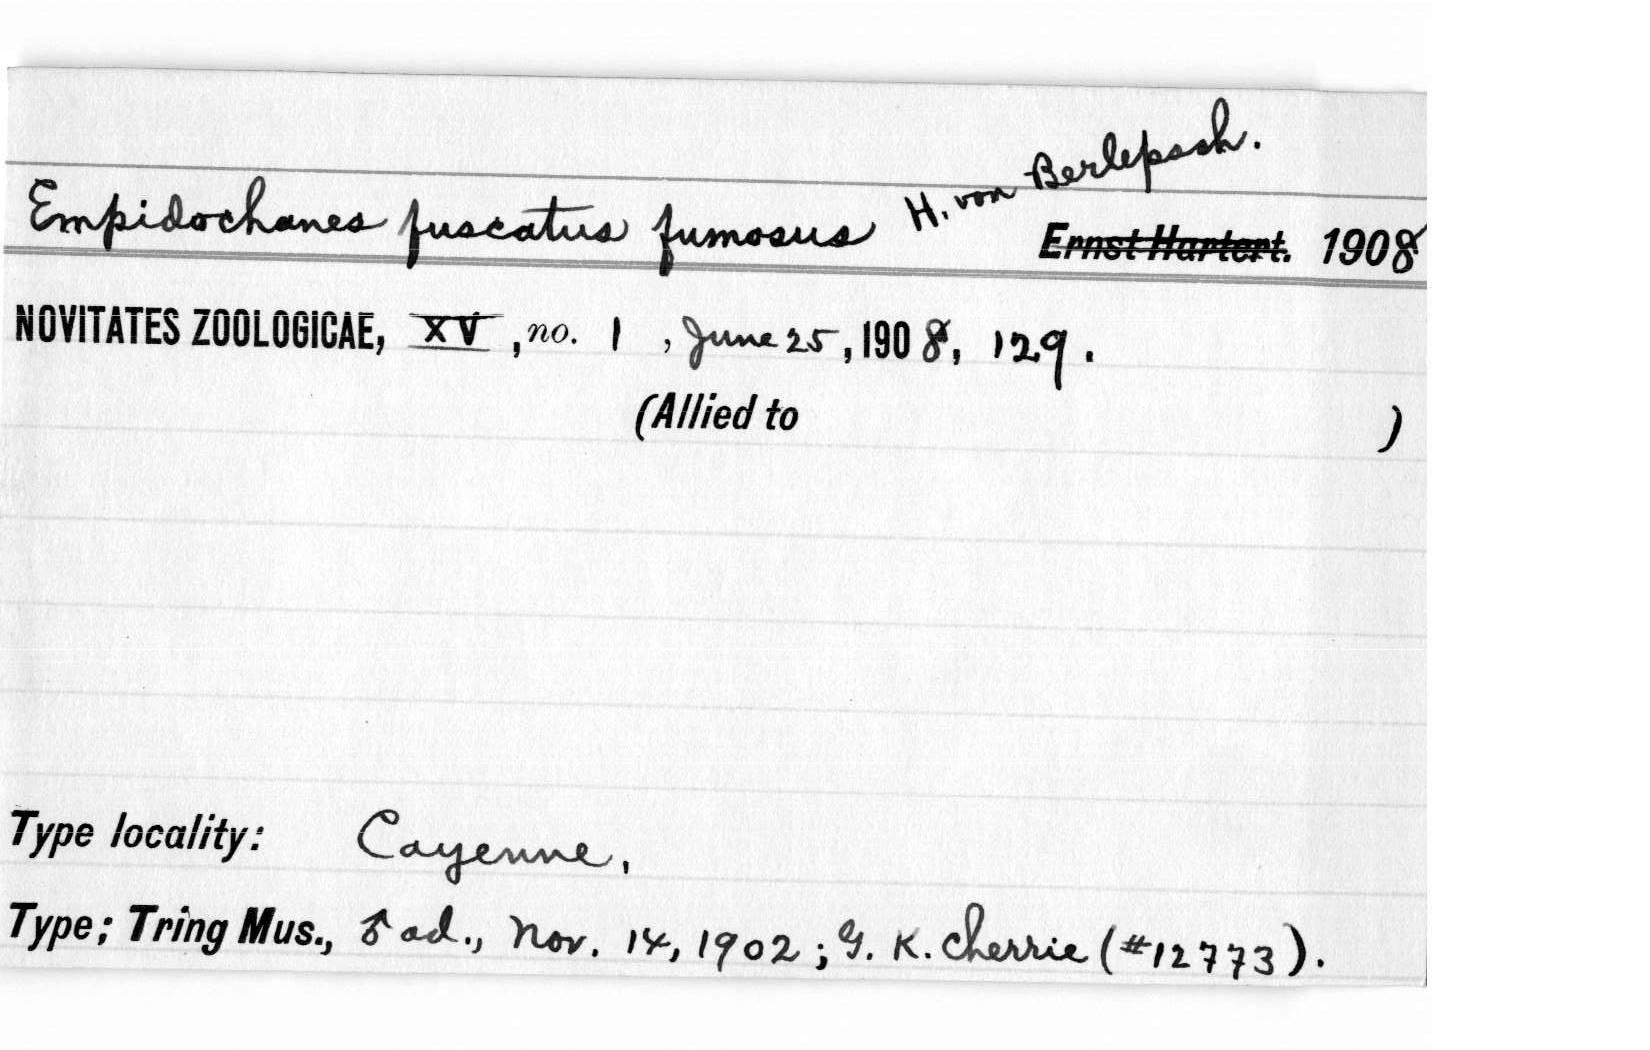 Empidochanes fuscatus fumosus H. von Berlepsch.
Ernst Hartert. 1908
NOVITATES ZOOLOGICAE, XV, no. 1, June 25, 1908, 129.
(Allied to )
Type locality: Cayenne,
Type; Tring Mus., ♂ ad., Nov. 14, 1902; G. K. Cherrie (#12773).